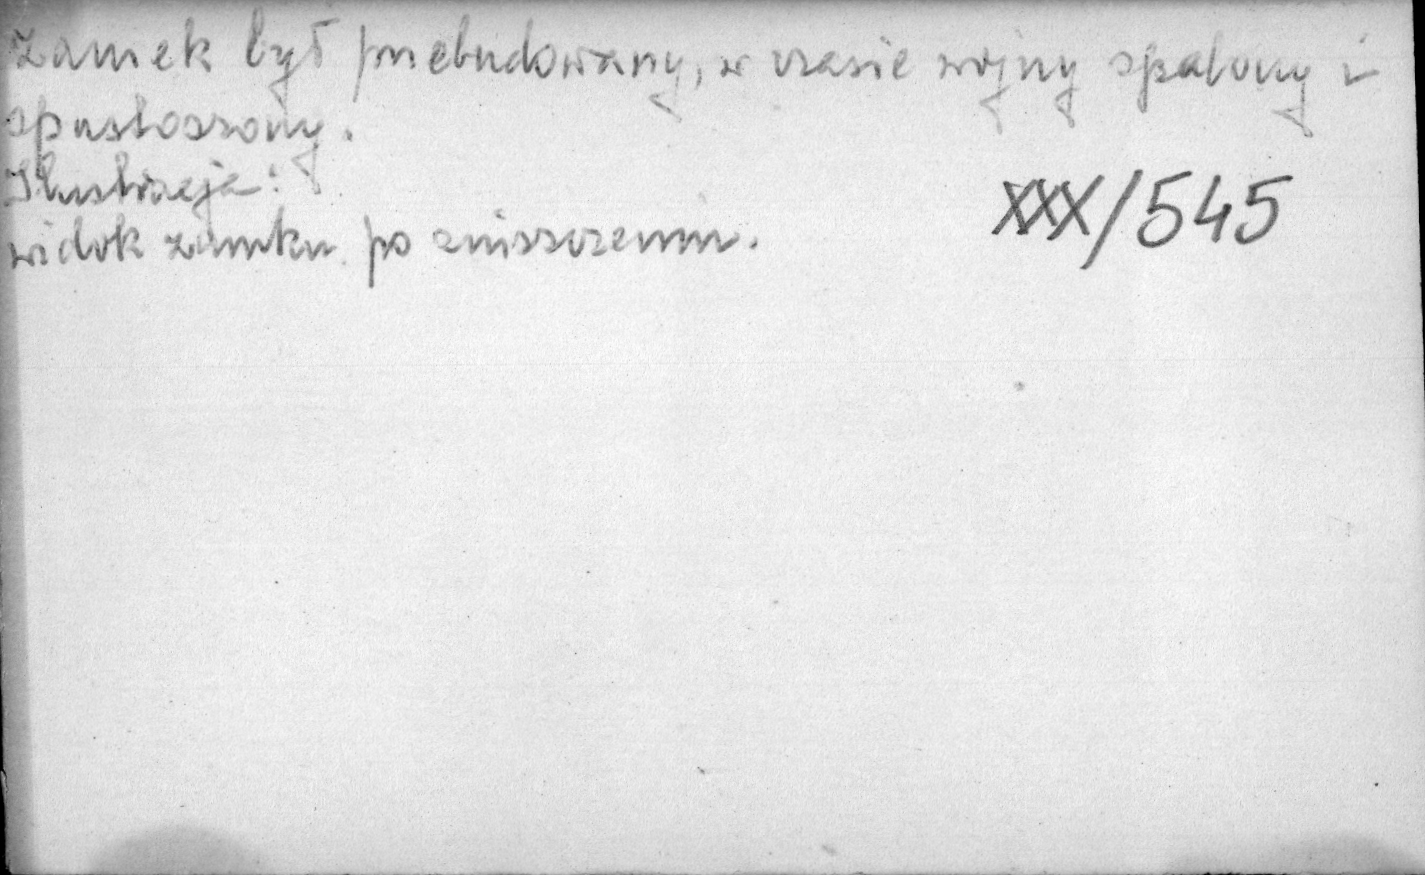 zamek był przebudowany, w czasie wojny spalony i
spustoszony.
Ilustracja:
widok zamku po zniszczeniu.
XXX/545